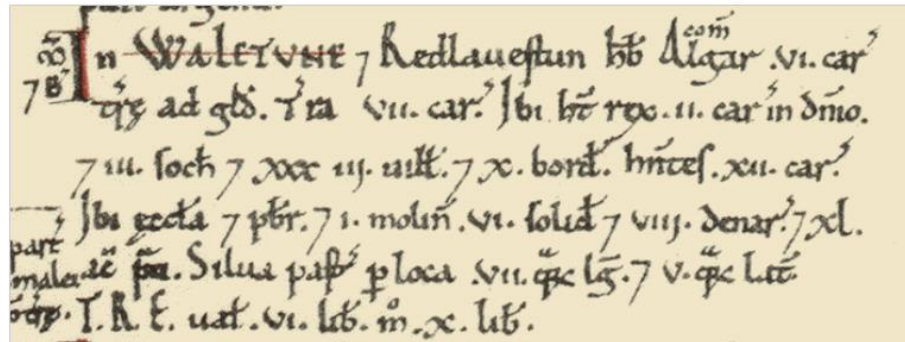 In WALETUNE ⁊ Redlauestun hb̄ Algar com̄ .vi. car̾
⁊ B̾ tr̄ę ad gld̄. Tr̄a .vii. car̾. Ibi ht̄ rex .ii. car̾ in dn̄io.
⁊ iii. soch̄ ⁊ xxx iii. uill̄. ⁊ x. bord̄. hn̄tes .xii. car̾.
Ibi ęccl̄a ⁊ pb̄r. ⁊ i. molin̄ .vi. solid̄ ⁊ viii. denar̾. ⁊ xl.
ac̄ p̄ti. Silua past̾ p loca .vii. q̄rc lḡ. ⁊ v. q̄rc lat̄
T.R.E. ual̄ .vi. lib̄. m̊ .x. lib̄.